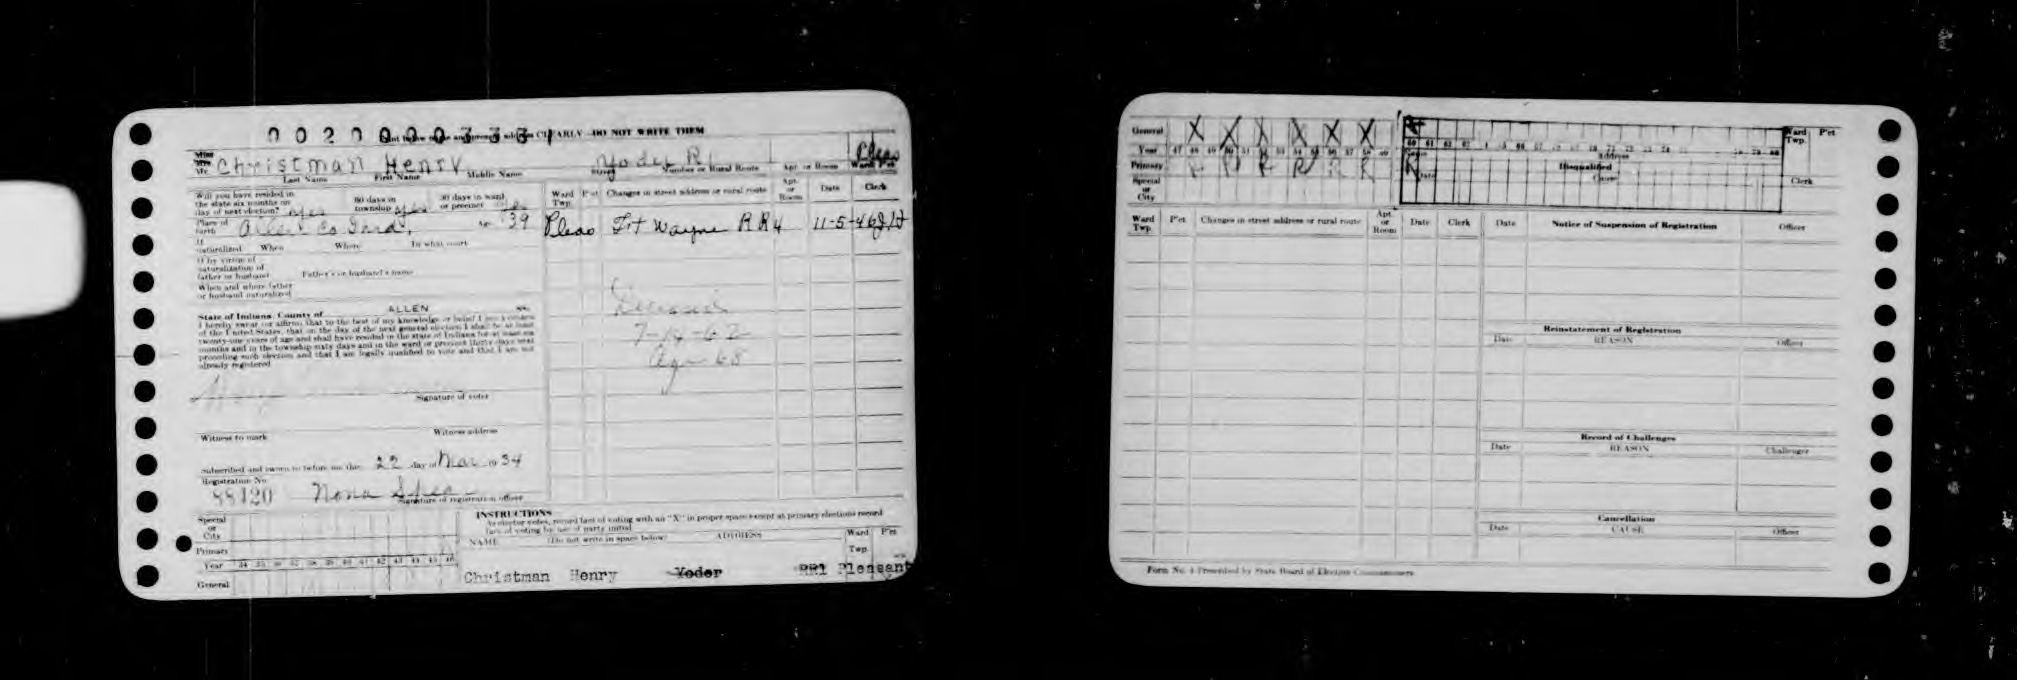 DO NOT WRITE THEM
Miss
Mrs.
Mr. Christman Henry Yoder R1 Pleas
Last Name First Name Middle Name Street Number or Rural Route Apt. or Room Ward Pct
Will you have resided in
the state six months on
day of next election? yes
60 days in
township yes
30 days in ward
or precinct yes
Place of
birth Allen Co Ind. Age 39
If
naturalized When Where In what court
If by virtue of
naturalization of
father or husband Father's or husband's name
When and where father
or husband naturalized
State of Indiana, County of ALLEN ss.
I hereby swear (or affirm) that to the best of my knowledge or belief I am a citizen
of the United States, that on the day of the next general election I shall be at least
twenty-one years of age and shall have resided in the state of Indiana for at least six
months and in the township sixty days and in the ward or precinct thirty days next
preceding such election and that I am legally qualified to vote and that I am not
already registered
Signature of voter
Witness to mark Witness address
Subscribed and sworn to before me this 22 day of Mar 1934
Registration No
88120 Nona
Signature of registration officer
Ward
Twp. P'ct Changes in street address or rural route Apt.
or
Room Date Clerk
Pleas Ft Wayne RR4 11-5-46
Deceased
7-14-62
Age 68
Special
or
City
Primary
Year 34 35 36 37 38 39 40 41 42 43 44 45 46
General
INSTRUCTIONS
As elector votes, record fact of voting with an "X" in proper space except at primary elections record
fact of voting by use of party initial
NAME (Do not write in space below) ADDRESS Ward
Twp. P'ct
Christman Henry Yoder RR1 Pleasant
General X X X X X X X
Year 47 48 49 50 51 52 53 54 55 56 57 58 59 60 61 62
Primary R R R R R
Special
or
City
Ward
Twp. P'ct
Address
Disqualified
Date Cause Clerk
Ward
Twp. P'ct Changes in street address or rural route Apt.
or
Room Date Clerk
Date Notice of Suspension of Registration Officer
Reinstatement of Registration
Date REASON Officer
Record of Challenges
Date REASON Challenger
Cancellation
Date CAUSE Officer
Form No. 4 Prescribed by State Board of Election Commissioners